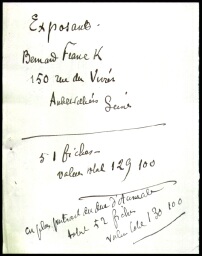 Exposant.
Bernard Franc K
150 rue du Vivier
Aubervilliers Seine
51 fiches
valeur total 129 100
en plus portrait du duc d'Aumale
total 52 fiches
valeur total 130 100